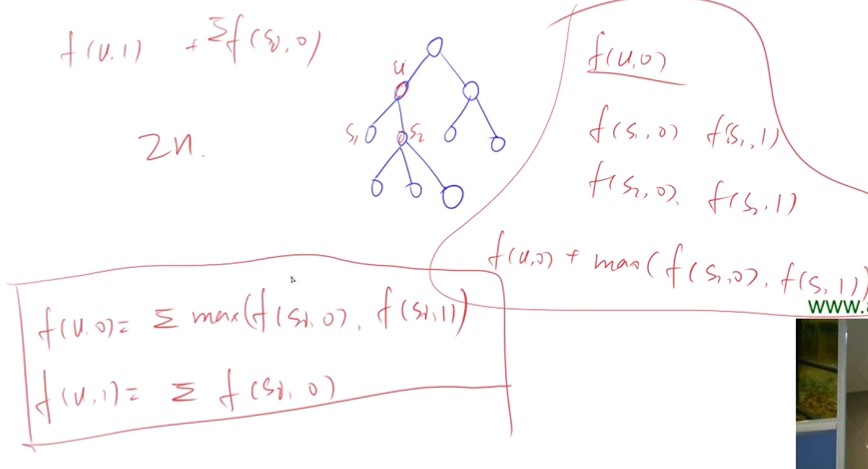 f(u,1) + Σf(si,0)
2n.
u
s1
s2
f(u,0)
f(s1,0) f(s1,1)
f(s2,0), f(s2,1)
f(u,0) + max(f(s1,0), f(s1,1))
f(u,0) = Σ max(f(si,0), f(si,1))
f(u,1) = Σ f(si,0)